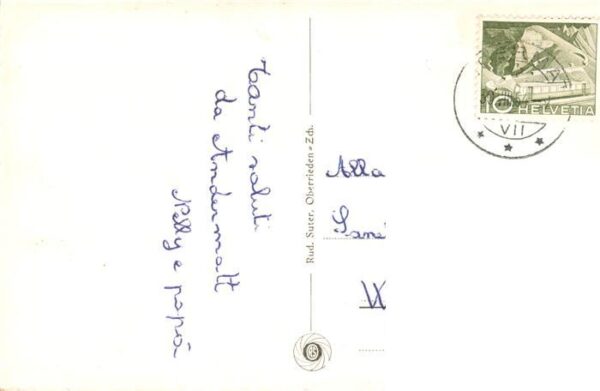 Tanti saluti
da Andermatt
Nelly e papà
Rud. Suter, Oberrieden-Zch.
Alla
10 HELVETIA
VII